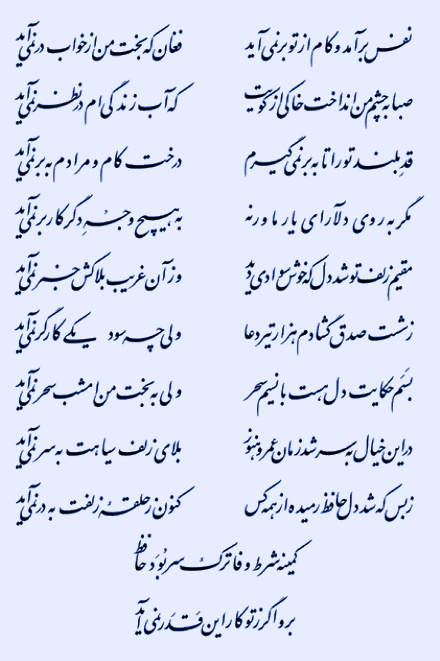 نفس برآمد و کام از تو بر نمی‌آید فغان که بخت من از خواب در نمی‌آید
صبا به چشم من انداخت خاکی از کویت که آب زندگی‌ام در نظر نمی‌آید
قد بلند تو را تا به بر نمی‌گیرم درخت کام و مرادم به بر نمی‌آید
مگر به روی دلارای یار ما ور نه به هیچ وجه دگر کار بر نمی‌آید
مقیم زلف تو شد دل که خوش سوادی دید وز آن غریب بلاکش خبر نمی‌آید
ز شست صدق گشادم هزار تیر دعا ولی چه سود یکی کارگر نمی‌آید
بسم حکایت دل هست با نسیم سحر ولی به بخت من امشب سحر نمی‌آید
در این خیال به سر شد زمان عمر و هنوز بلای زلف سیاهت به سر نمی‌آید
ز بس که شد دل حافظ رمیده از همه کس کنون ز حلقهٔ زلفت به در نمی‌آید
کمینه شرط وفا ترک سر بُوَد حافظ
برو اگر ز تو کار این قَدَر نمی‌آید